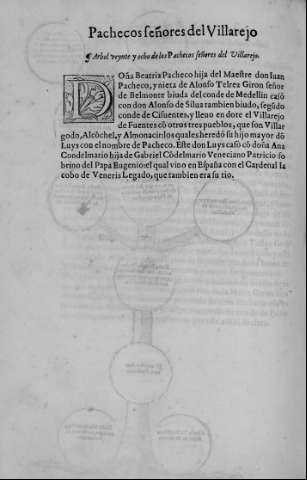 Pachecos señores del Villarejo
¶ Arbol veynte y ocho de los Pachecos señores del Villarejo.
DOña Beatriz Pacheco hija del Maestre don Iuan
Pacheco, y nieta de Alonso Tellez Giron señor
de Belmonte biuda del conde de Medellin casò
con don Alonso de Silua tambien biudo, segũdo
conde de Cifuentes, y lleuo en dote el Villarejo
de Fuentes cõ otros tres pueblos, que son Villar
gordo, Alcöchel, y Almonacir los quales heredó su hijo mayor dõ
Luys con el nombre de Pacheco. Este don Luys casò cõ doña Ana
Condelmario hija de Gabriel Cõdelmario Veneciano Patricio so
brino del Papa Eugenio el qual vino en España con el Cardenal Ia
cobo de Veneris Legado, que tambien era su tio.